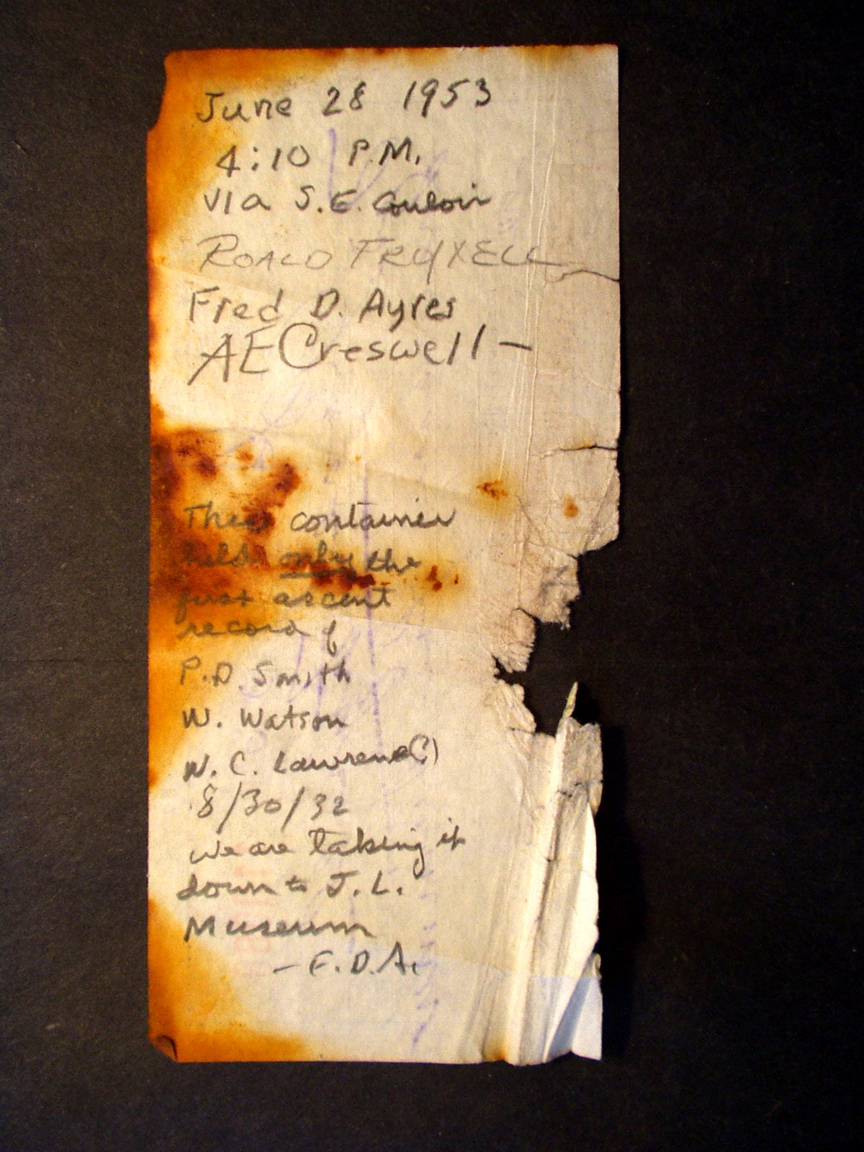 June 28 1953
4:10 P.M.
via S.E. Couloir
ROALD FRYXELL
Fred D. Ayres
AECreswell —
This container
held only the
first ascent
record of
P.D. Smith
W. Watson
W. C. Lawrence(?)
8/30/32
we are taking it
down to J.L.
Museum
— F.D.A.